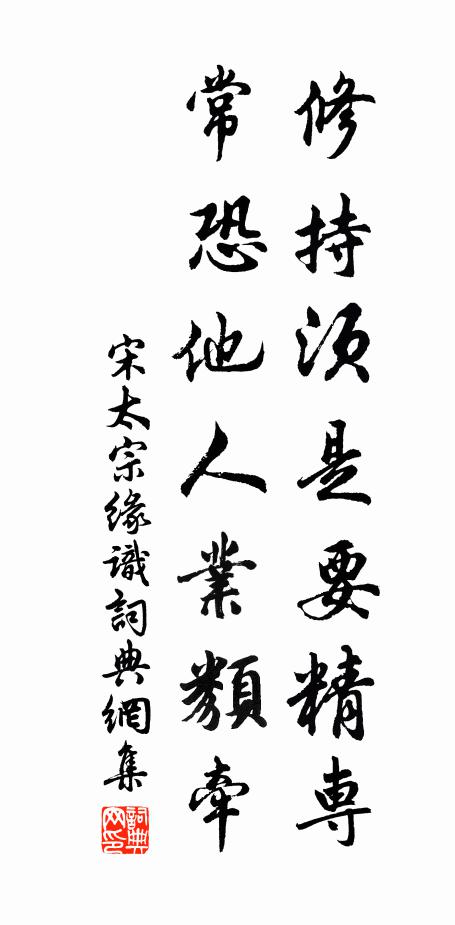 修持須是要精専
常恐他人業類牽
宋太宗緣識詞典網集
詞典
网印